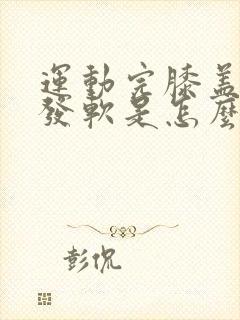 運動完膝蓋
發軟是怎麼
彭侃